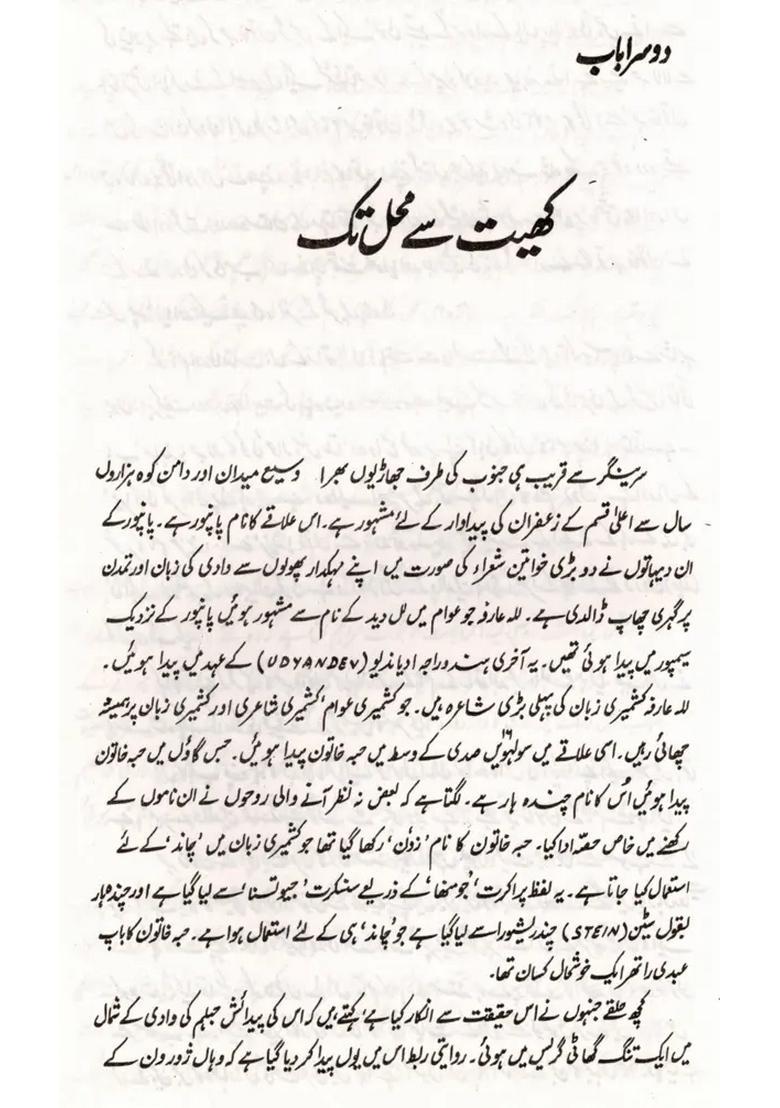 دوسرا باب
کھیت سے محل تک
سرینگر سے قریب ہی جنوب کی طرف جھاڑیوں بھرا وسیع میدان اور دامن کوہ ہزاروں
سال سے اعلیٰ قسم کے زعفران کی پیداوار کے لئے مشہور ہے۔ اس علاقے کا نام پانپور ہے۔ پانپور کے
ان دیہاتوں نے دو بڑی خواتین شعراء کی صورت میں اپنے مہکدار پھولوں سے وادی کی زبان اور تمدن
پر گہری چھاپ ڈالدی ہے۔ للہ عارفہ جو عوام میں لل دید کے نام سے مشہور ہوئیں پانپور کے نزدیک
سیمپور میں پیدا ہوئی تھیں۔ یہ آخری ہندو راجہ ادیاندیو (UDYANDEV) کے عہد میں پیدا ہوئیں۔
للہ عارفہ کشمیری زبان کی پہلی بڑی شاعرہ ہیں۔ جو کشمیری عوام، کشمیری شاعری اور کشمیری زبان پر ہمیشہ
چھائی رہیں۔ اسی علاقے میں سولہویں صدی کے وسط میں حبہ خاتون پیدا ہوئیں۔ جس گاؤں میں حبہ خاتون
پیدا ہوئیں اُس کا نام چندہ ہار ہے۔ لگتا ہے کہ بعض نہ نظر آنے والی روحوں نے ان ناموں کے
رکھنے میں خاص حصّہ ادا کیا۔ حبہ خاتون کا نام ’زوٗن‘ رکھا گیا تھا جو کشمیری زبان میں ’چاند‘ کے لئے
استعمال کیا جاتا ہے۔ یہ لفظ پراکرت ’جوسنھا‘ کے ذریعے سنسکرت ’جیوتسنا‘ سے لیا گیا ہے اور چندہ ہار
بقول سٹین (STEIN) چندریشور سے لیا گیا ہے جو ’چاند‘ ہی کے لئے استعمال ہوا ہے۔ حبہ خاتون کا باپ
عبدی راتھر ایک خوشحال کسان تھا۔
کچھ حلقے جنہوں نے اس حقیقت سے انکار کیا ہے، کہتے ہیں کہ اس کی پیدائش جہلم کی وادی کے شمال
میں ایک تنگ گھاٹی گریس میں ہوئی۔ روایتی ربط اس میں یوں پیدا کر دیا گیا ہے کہ وہاں ژور ون کے